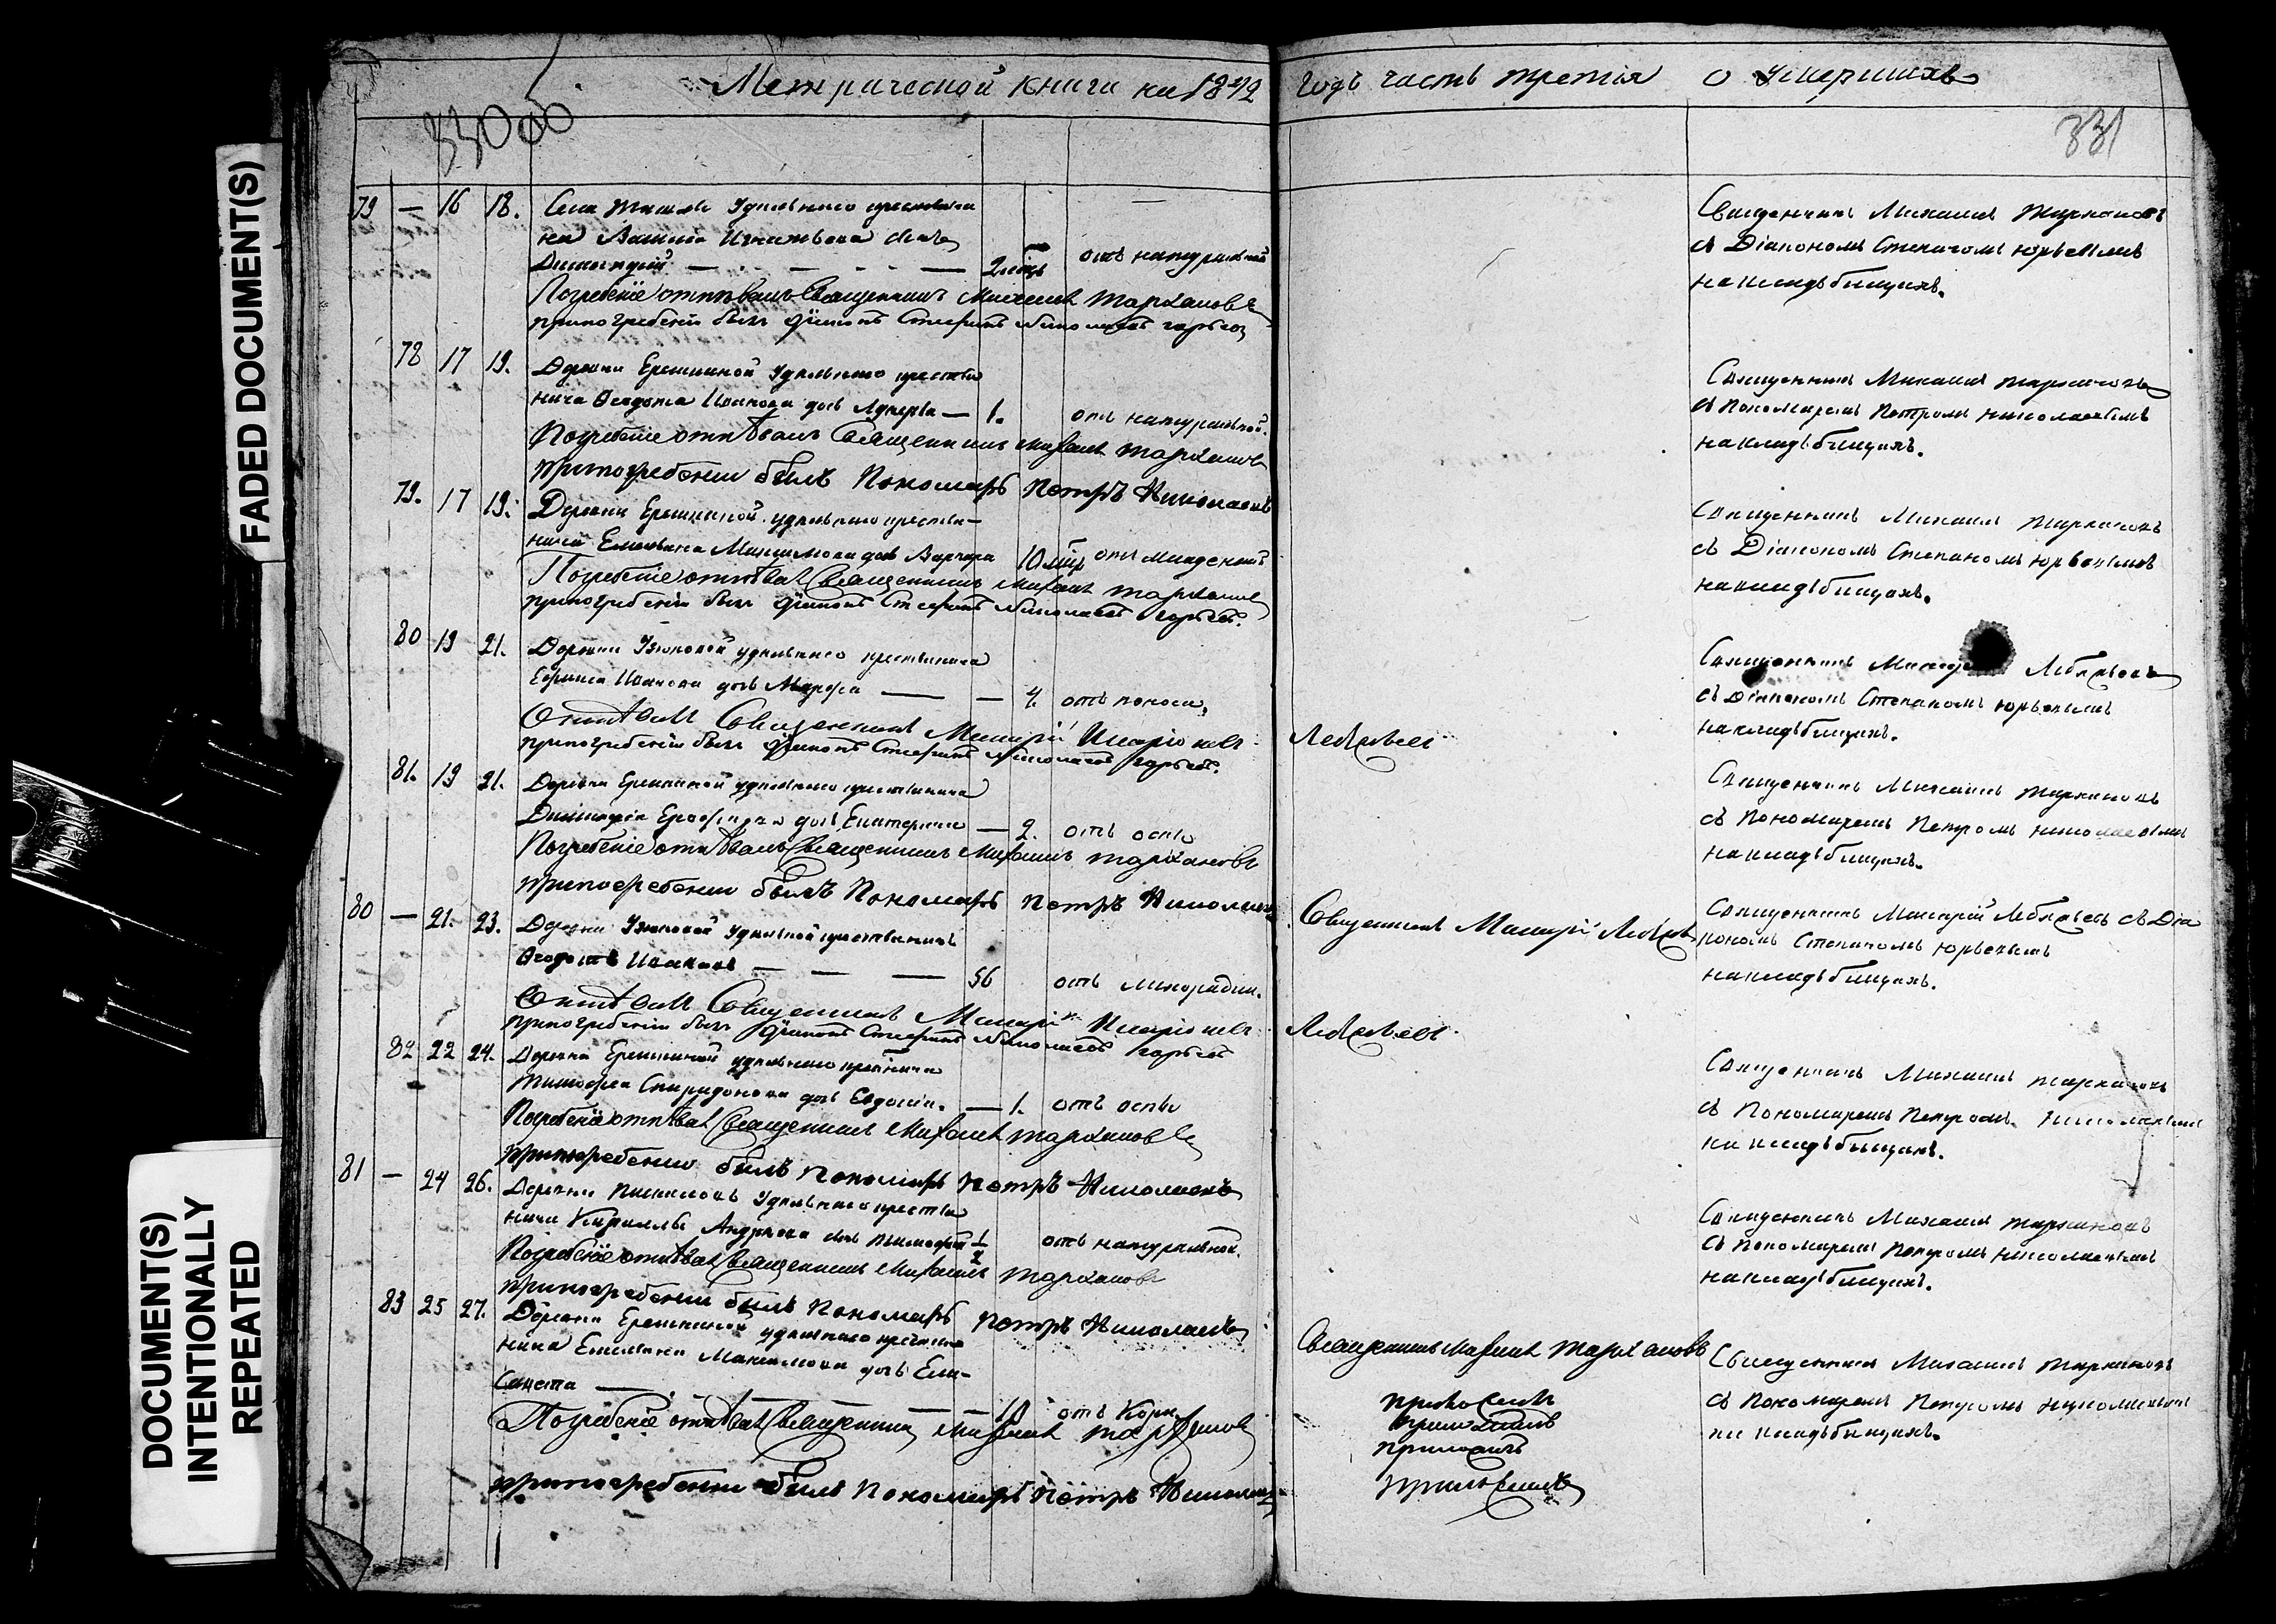 FADED DOCUMENT(S)
DOCUMENT(S)
INTENTIONALLY
REPEATED
Метрической книги на 1842 годъ часть третія о умершихъ
331
79 — 16 18. Села удѣльнаго крестьяни
на Игнатьева сынъ
отъ натуральной
Погребеніе отпѣвалъ Священникъ Михаилъ Тархановъ
при погребеніи былъ Діаконъ Стефанъ Николаевъ Юрьевъ
Священникъ Михаилъ Тархановъ
съ Діакономъ Степаномъ Юрьевымъ
на кладбищахъ.
78 17 19. Деревни Ерешкиной удѣльнаго крестья
нина Федота Иванова дочь — 1. отъ натуральной.
Погребеніе отпѣвалъ Священникъ Михаилъ Тархановъ
при погребеніи былъ Пономарь Петръ Николаевъ
Священникъ Михаилъ Тархановъ
съ Пономаремъ Петромъ Николаевымъ
на кладбищахъ.
79. 17 19. Деревни Ерешкиной удѣльнаго крестья-
нина Емельяна Максимова дочь Варвара 10 отъ младенской
Погребеніе отпѣвалъ Священникъ Михаилъ Тархановъ
при погребеніи былъ Діаконъ Стефанъ Николаевъ Юрьевъ.
Священникъ Михаилъ Тархановъ
съ Діакономъ Степаномъ Юрьевымъ
на кладбищахъ.
80 19 21. Деревни удѣльнаго крестьянина
Ефима Иванова дочь Марфа — — 4. отъ поноса
Отпѣвалъ Священникъ Макарій Иларіоновъ Лебедевъ
при погребеніи былъ Діаконъ Стефанъ Николаевъ Юрьевъ.
Священникъ Лебедевъ
съ Діакономъ Степаномъ Юрьевымъ
на кладбищахъ.
81. 19 21. Деревни Ерешкиной удѣльнаго крестьянина
дочь Екатерина — 2. отъ оспы
Погребеніе отпѣвалъ Священникъ Михаилъ Тархановъ
при погребеніи былъ Пономарь Петръ Николаевъ
Священникъ Михаилъ Тархановъ
съ Пономаремъ Петромъ Николаевымъ
на кладбищахъ.
80 — 21. 23. Деревни удѣльной крестьянинъ
Федотъ Ивановъ — — — 56 отъ лихорадки.
Отпѣвалъ Священникъ Макарій Иларіоновъ Лебедевъ
при погребеніи былъ Діаконъ Стефанъ Николаевъ Юрьевъ
Священникъ Макарій
Священникъ Макарій Лебедевъ съ Діа
кономъ Степаномъ Юрьевымъ
на кладбищахъ.
82 22 24. Деревни Ерешкиной удѣльнаго
Тимофея Спиридонова дочь Евдокія. — 1. отъ оспы
Погребеніе отпѣвалъ Священникъ Михаилъ Тархановъ
при погребеніи былъ Пономарь Петръ Николаевъ
Священникъ Михаилъ Тархановъ
съ Пономаремъ Петромъ Николаевымъ
на кладбищахъ.
81 — 24 26. Деревни удѣльнаго крестья
нина Кирилла Андреева сынъ Тимофей 1/2 отъ натуральной.
Погребеніе отпѣвалъ Священникъ Михаилъ Тархановъ
при погребеніи былъ Пономарь Петръ Николаевъ
Священникъ Михаилъ Тархановъ
съ Пономаремъ Петромъ Николаевымъ
на кладбищахъ.
83 25 27. Деревни Ерешкиной удѣльнаго крестья
нина Емельяна Максимова дочь Ели-
савета — 10 отъ Кори
Погребеніе отпѣвалъ Священникъ Михаилъ Тархановъ
при погребеніи былъ Пономарь Петръ Николаевъ
Священникъ Михаилъ Тархановъ
Священникъ Михаилъ Тархановъ
съ Пономаремъ Петромъ Николаевымъ
на кладбищахъ.